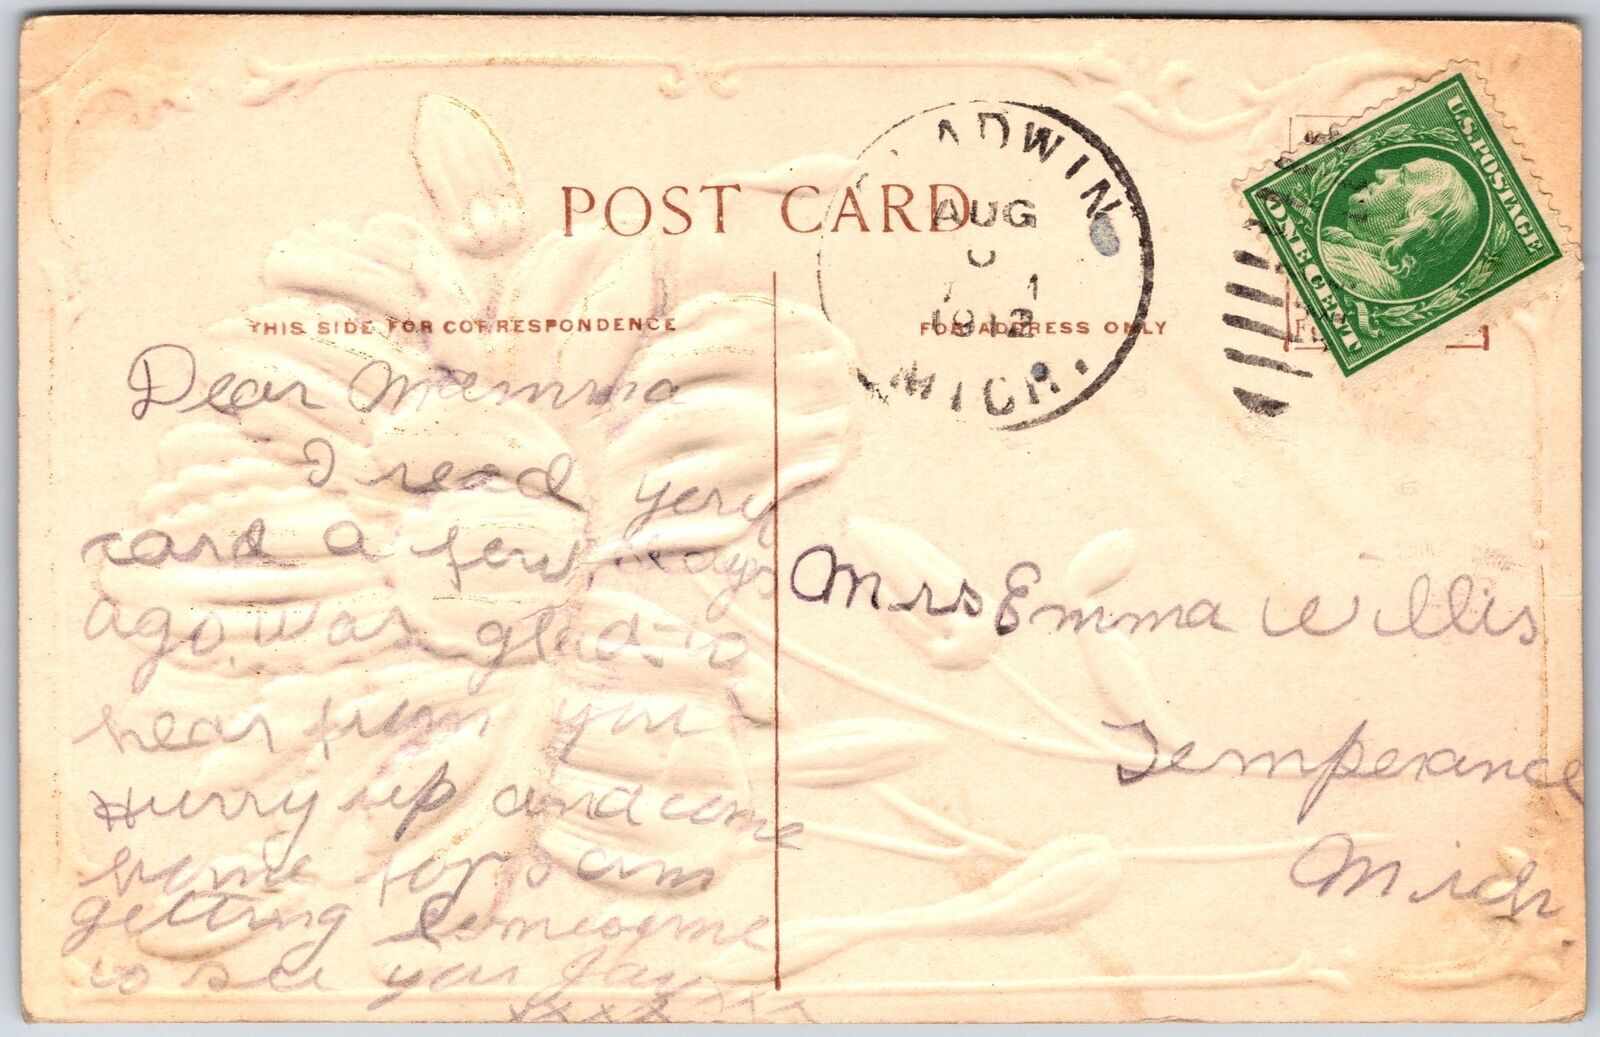 POST CARD
THIS SIDE FOR CORRESPONDENCE
FOR ADDRESS ONLY
ADWIN
AUG
1
1912
MICH.
U.S. POSTAGE
ONE CENT
Dear Mamma
I read yory
card a few days
ago, was glad to
hear from you
Hurry up and come
home for I am
getting lonesome
to see you Jay
xxxxxxx
Mrs Emma Willis
Temperance
Mich.